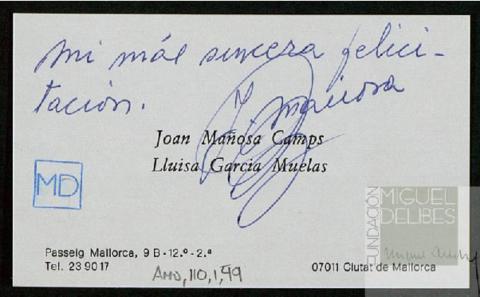 Mi más sincera felici-
tación.
J. Mañosa
Joan Mañosa Camps
Lluisa García Muelas
MD
FUNDACIÓN
MIGUEL
DELIBES
Passeig Mallorca, 9 B - 12.º - 2.ª
Tel. 23 90 17
07011 Ciutat de Mallorca
AMD,110,1,99